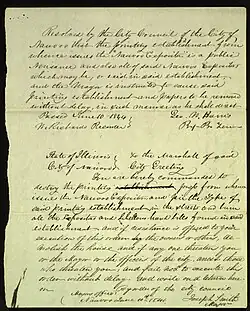 Resolved by the City Council of the City of
Nauvoo that the printing establishment from
whence issues the Nauvoo Expositor is a public
Nuisance and also all of said Nauvoo Expositors
which may be, or exist in said establishment,
and the Mayor is instructed to cause said
printing establishment and papers to be removed
without delay, in such manner as he shall direct.
Passed June 10. 1844. Geo. W. Harris
W. Richards Recorder Pres. Pro. Tem.
State of Illinois } To the Marshall of said
City of Nauvoo } City, Greeting
You are hereby commanded to
destroy the printing press from whence
issues the Nauvoo Expositor and pi the Type of
said printing establishment in the Street and burn
all the Expositors and libellous hand bills found in said
establishment, and if resistance is offered to your
execution of this order by the owners or others,
demolish the house, and if any one threatens you
or the Mayor or the officers of the city, arrest those
who threaten you, and fail not to execute this
order without delay, and make due return hereon.
By order of the city council
Nauvoo June 10th 1844. Joseph Smith
Mayor